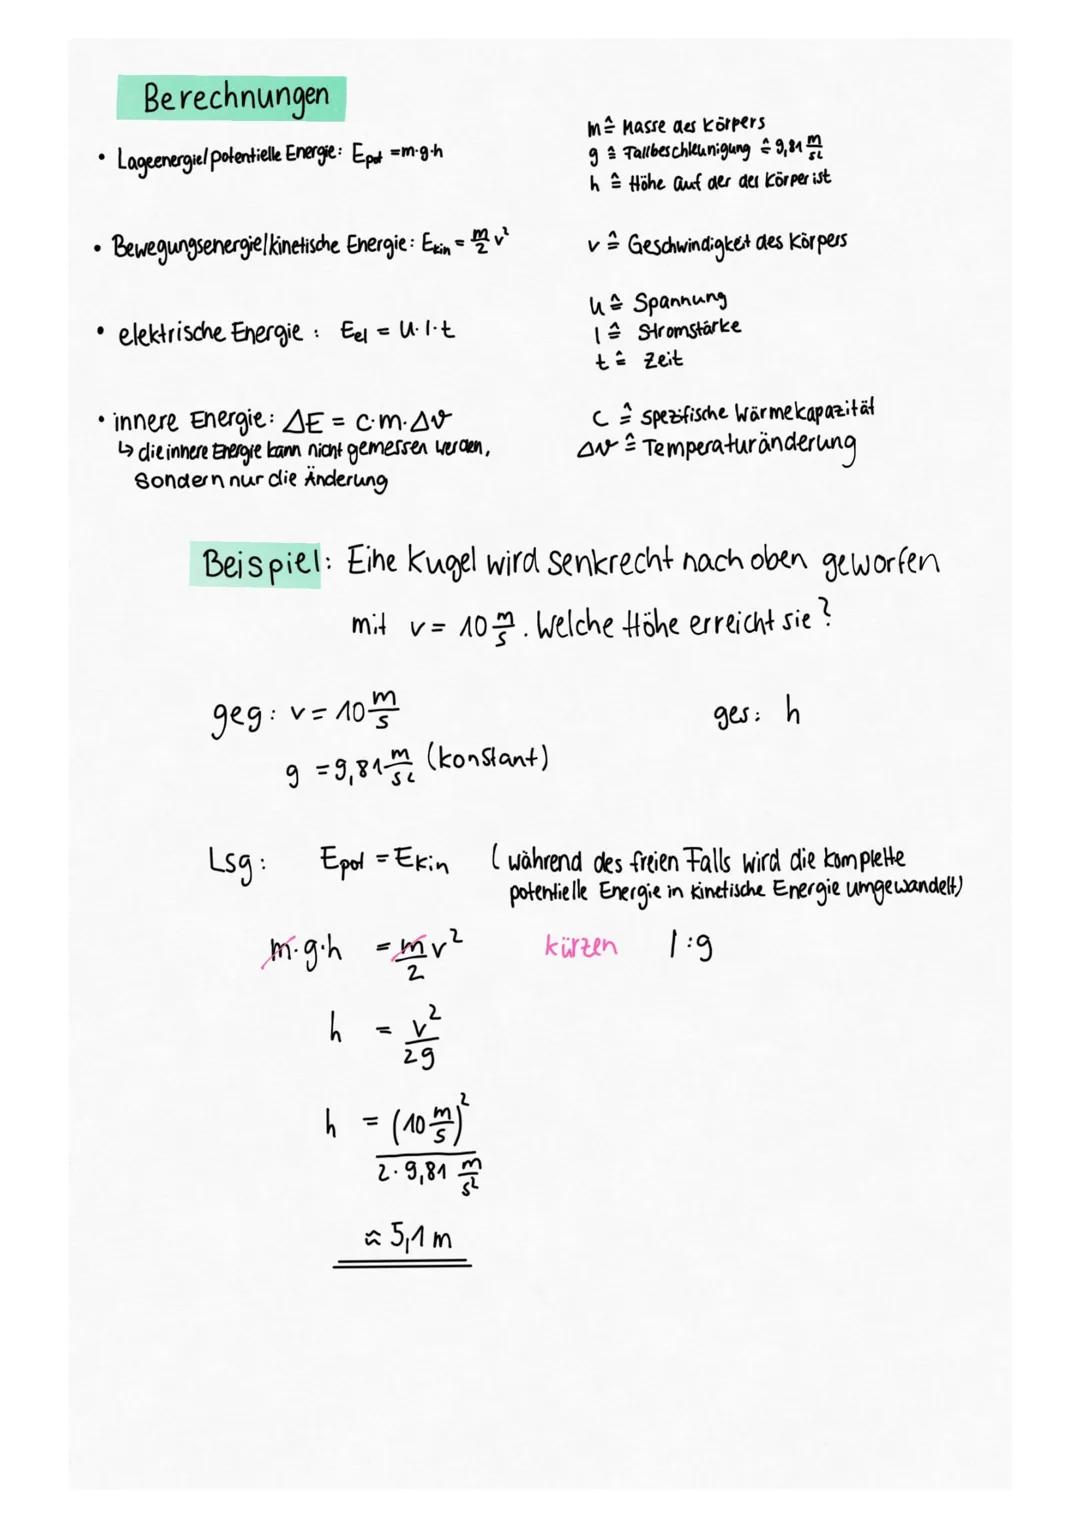 Berechnungen
• Lageenergie/potentielle Energie: Epot = m·g·h
m ≙ Masse des Körpers
g ≙ Fallbeschleunigung ≙ 9,81 m/s²
h ≙ Höhe auf der der Körper ist
• Bewegungsenergie/kinetische Energie: Ekin = m/2 v²
v ≙ Geschwindigkeit des Körpers
• elektrische Energie: Eel = U·I·t
U ≙ Spannung
I ≙ Stromstärke
t ≙ Zeit
• innere Energie: ΔE = c·m·Δϑ
↳ die innere Energie kann nicht gemessen werden,
sondern nur die Änderung
c ≙ spezifische Wärmekapazität
Δϑ ≙ Temperaturänderung
Beispiel: Eine Kugel wird senkrecht nach oben geworfen
mit v = 10 m/s. Welche Höhe erreicht sie?
geg: v = 10 m/s
ges: h
g = 9,81 m/s² (konstant)
Lsg: Epot = Ekin (während des freien Falls wird die komplette
potentielle Energie in kinetische Energie umgewandelt)
m·g·h = m/2 v² kürzen |:g
h = v²/2g
h = (10 m/s)² / 2·9,81 m/s²
≈ 5,1 m